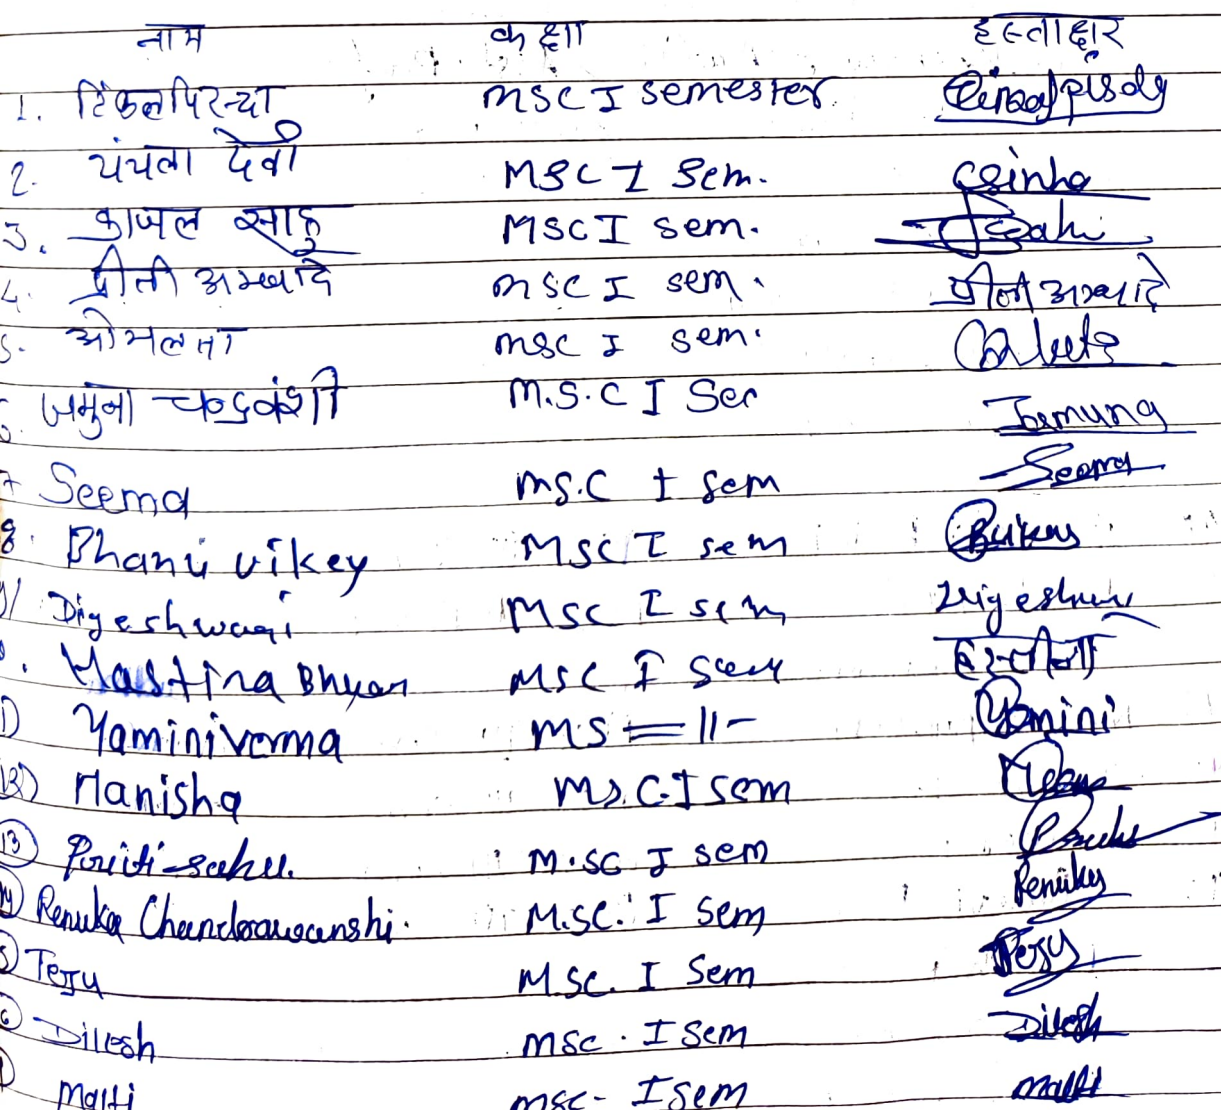 नाम कक्षा हस्ताक्षर
1. टिंकलपिस्दा MSC I semester
2. चंचला देवी MSC I Sem. Csinha
3. काजल साहू MSC I sem. Sahu
4. प्रीती अम्बादे MSC I sem. प्रीती अम्बादे
5. ओमलता MSC I sem.
जमुना चन्द्रवंशी M.S.C I Sem Jamuna
7 Seema MS.C I Sem Seema
8. Bhanu uikey MSC I sem
Digeshwari MSC I sem Digeshwari
Hastina Bhuar MSC I Sem हस्तीना
Yamini verma MS = 11- Yamini
12) Manisha MS.C.I sem
13 Priti-sahu. M.SC I sem
14 Renuka Chandrawanshi. M.SC. I Sem Renuka
Teju M.SC. I Sem Teju
Dilesh MSC. I Sem Dilesh
Malti MSC- I Sem Malti